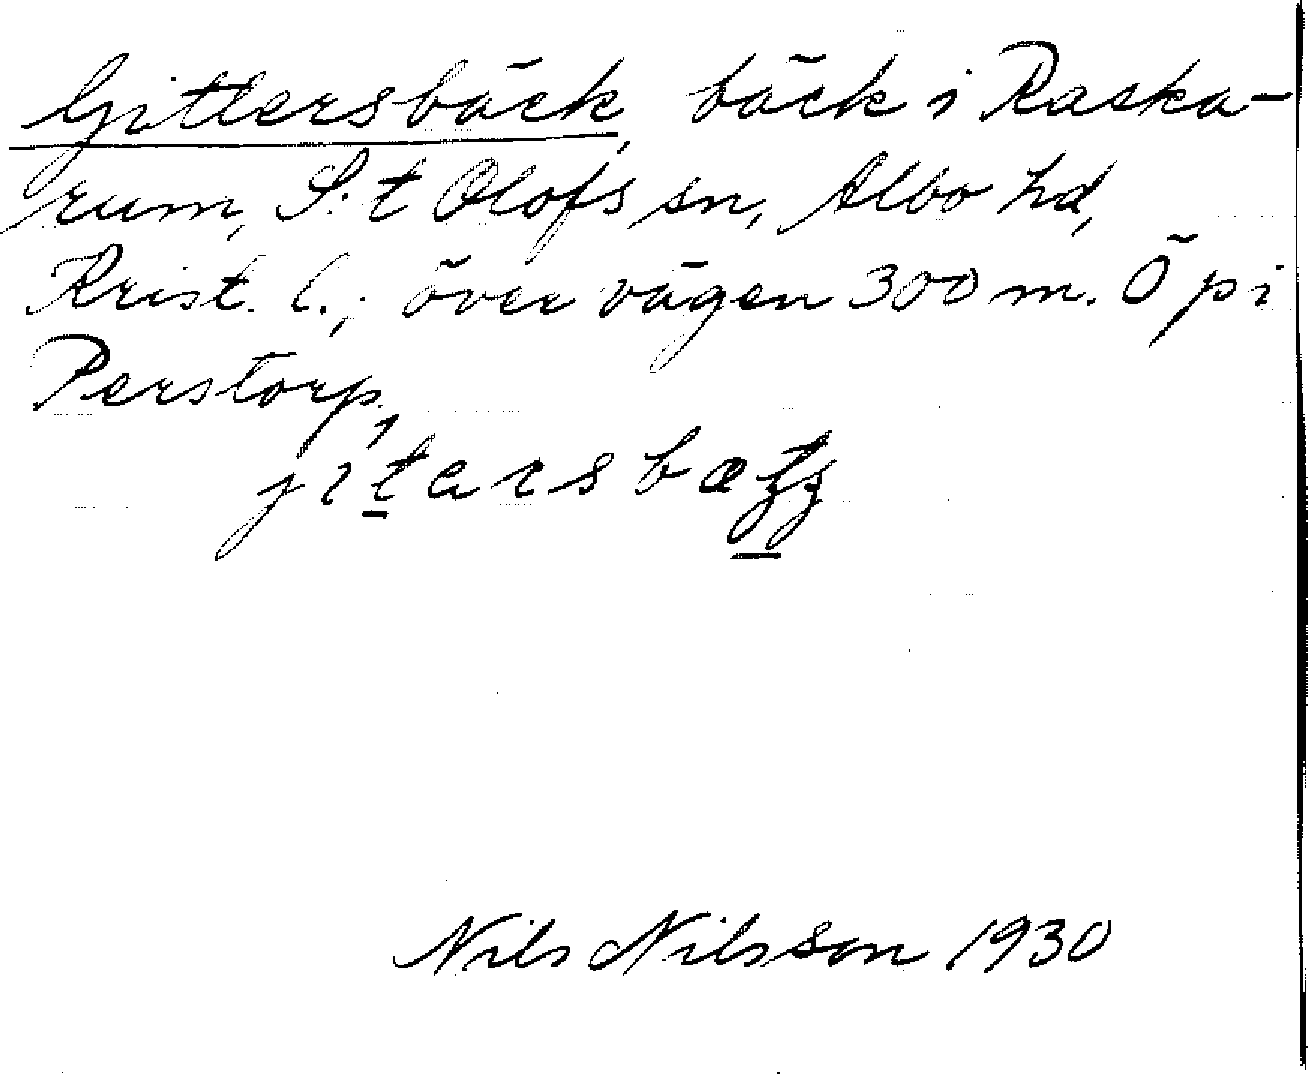 Gittersbäck, bäck i Raska-
rum, S:t Olofs sn, Albo hd,
Krist. l.; över vägen 300 m. Ö pi
Perstorp,
Nils Nilsson 1930